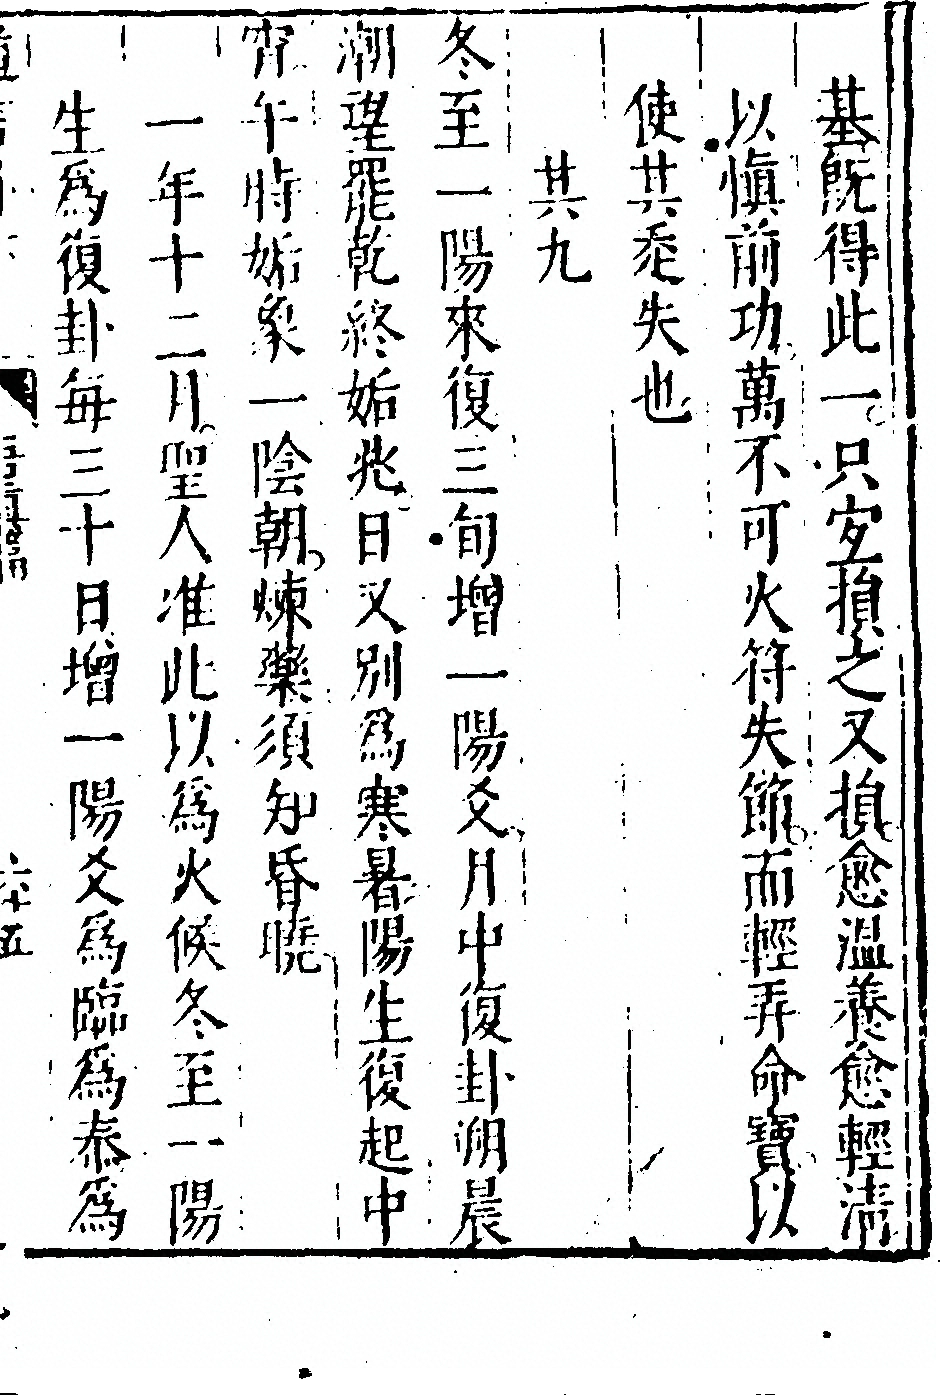 基既得此一只宜損之又損愈溫養愈輕清
以慎前功萬不可火符失節而輕弄命寶以
使其耗失也
其九
冬至一陽來復三旬增一陽爻月中復卦朔晨
潮望罷乾終姤兆日又別為寒暑陽生復起中
宵午時姤象一陰朝煉藥須知昏曉
一年十二月聖人准此以為火候冬至一陽
生為復卦每三十日增一陽爻為臨為泰為
六十五